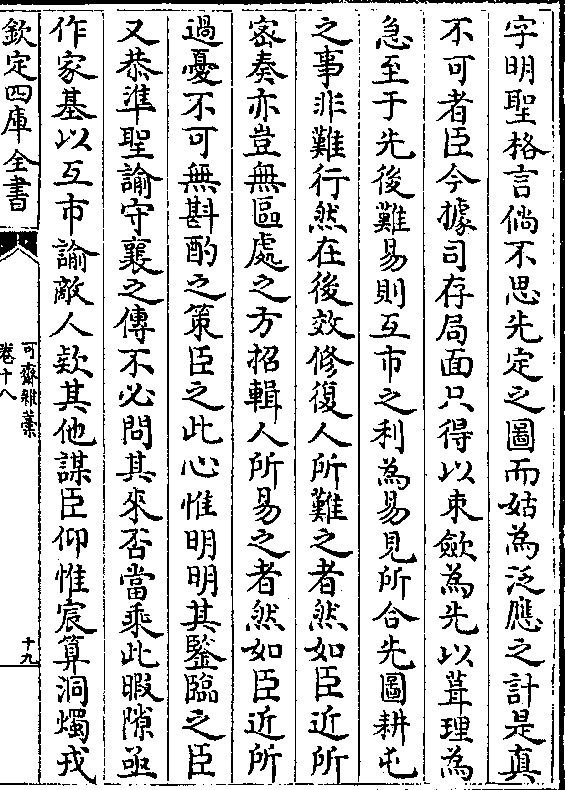 字明聖格言倘不思先定之圖而姑為泛應之計是真
不可者臣今據司存局面只得以束歛為先以葺理為
急至于先後難易則互市之利為易見所合先圖耕屯
之事非難行然在後效修復人所難之者然如臣近所
宻奏亦豈無區處之方招輯人所易之者然如臣近所
過憂不可無斟酌之策臣之此心惟明明其鑒臨之臣
又恭準聖諭守襄之傳不必問其來否當乘此暇隙亟
作家基以互市諭敵人欵其他謀臣仰惟宸算洞燭戎
欽定四庫全書
可齋雜藁
卷十八
十九